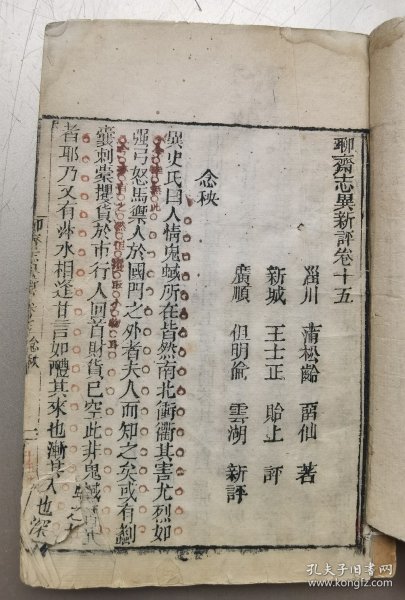 聊齋志異新評卷十五
淄川 蒲松齡 留仙 著
新城 王士正 貽上 評
廣順 但明倫 雲湖 新評
念秧
異史氏曰人情鬼蜮所在皆然南北衝衢其害尤烈如
强弓怒馬禦人於國門之外者夫人而知之矣或有劙
囊刺橐攫貨於市行人回首財貨已空此非鬼蜮之尤
者耶乃又有萍水相逢甘言如醴其來也漸其入也深
孔夫子旧书网
www.kongfz.com